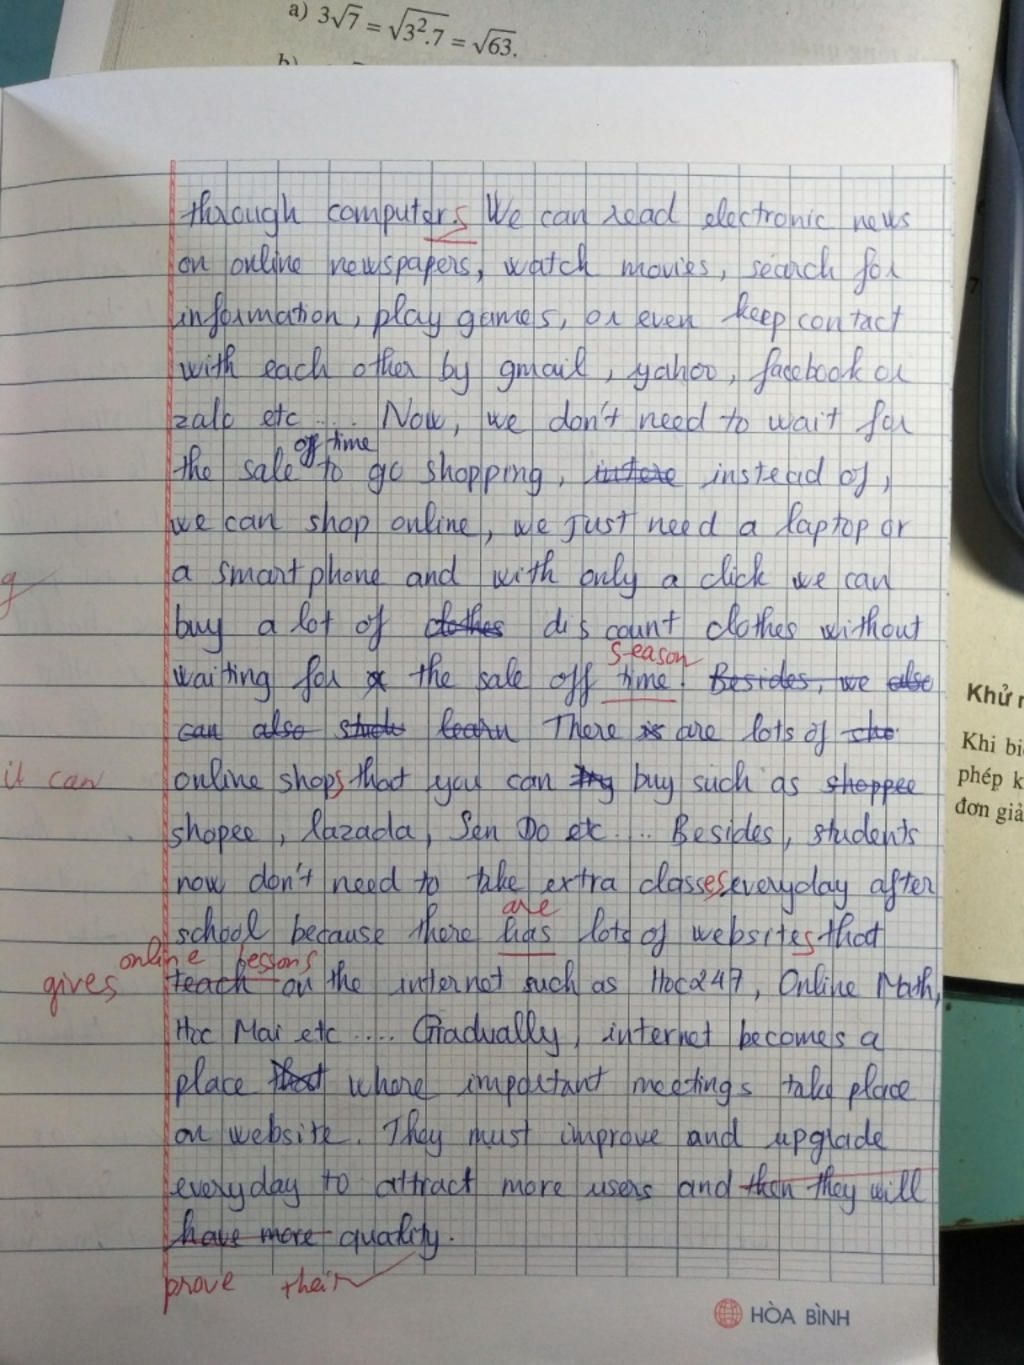 a) 3√7 = √3².7 = √63.
b)
through computers We can read electronic news
on online newspapers, watch movies, search for
information, play games, or even keep contact
with each other by gmail, yahoo, facebook or
zalo etc .... Now, we don't need to wait for
off time
the sale to go shopping, instead of,
we can shop online, we just need a laptop or
g
a smart phone and with only a click we can
buy a lot of clothes discount clothes without
season
waiting for the sale off time. Besides, we also
can also study learn There is are lots of
it can
online shops that you can buy such as shoppee
shopee, lazada, Sen Do etc ... Besides, students
now don't need to take extra classes everyday after
are
school because there has lots of websites that
online lessons
gives teach on the internet such as Hoc247, Online Math,
Hoc Mai etc .... Gradually, internet becomes a
place that where important meetings take place
on website. They must improve and upgrade
everyday to attract more users and then they will
have more quality.
prove their
HÒA BÌNH
Khử
Khi bi
phép k
đơn giả